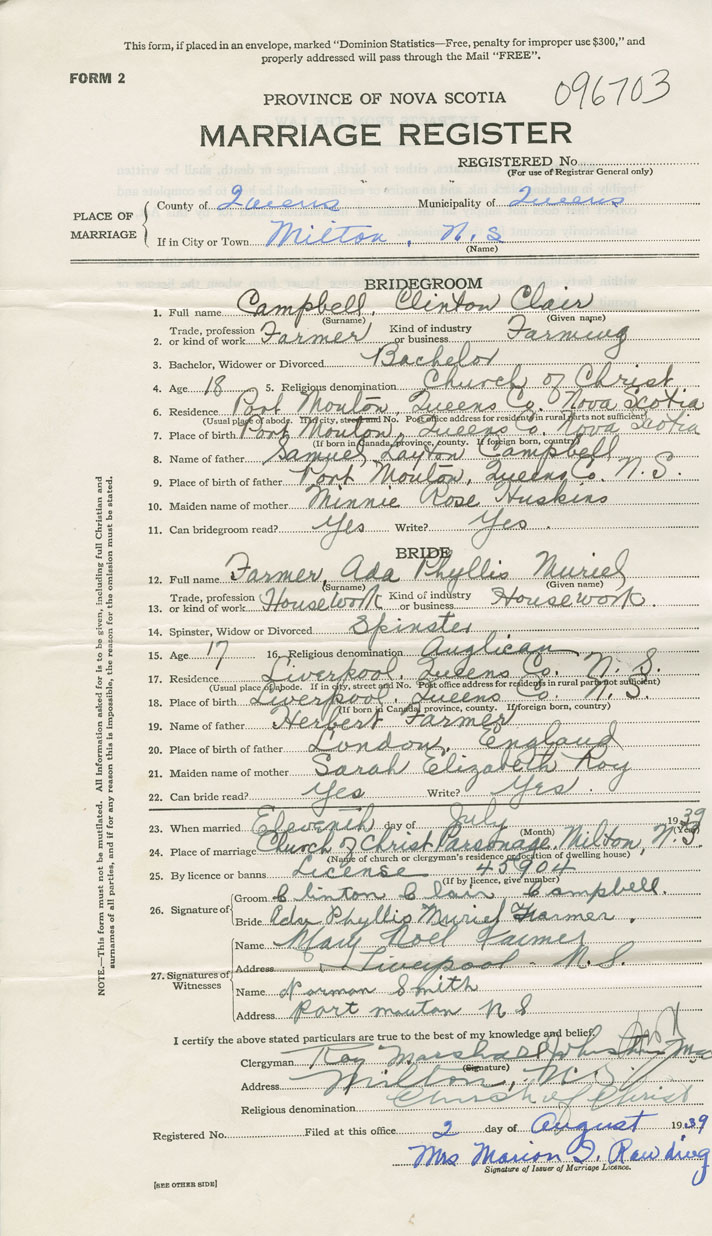 This form, if placed in an envelope, marked "Dominion Statistics—Free, penalty for improper use $300," and
properly addressed will pass through the Mail "FREE".
FORM 2
096703
PROVINCE OF NOVA SCOTIA
MARRIAGE REGISTER
REGISTERED No.
(For use of Registrar General only)
PLACE OF MARRIAGE
County of Queens Municipality of Queens
If in City or Town Milton, N.S
(Name)
BRIDEGROOM
1. Full name Campbell, Clinton Clair
(Surname) (Given name)
2. Trade, profession or kind of work Farmer Kind of industry or business Farming
3. Bachelor, Widower or Divorced Bachelor
4. Age 18 5. Religious denomination Church of Christ
6. Residence Port Mouton, Queens Co. Nova Scotia
(Usual place of abode. If in city, street and No. Post office address for residents in rural parts not sufficient)
7. Place of birth Port Mouton, Queens Co. Nova Scotia
(If born in Canada, province, county. If foreign born, country)
8. Name of father Samuel Layton Campbell
9. Place of birth of father Port Mouton, Queens Co. N.S.
10. Maiden name of mother Minnie Rose Huskins
11. Can bridegroom read? Yes Write? Yes.
BRIDE
12. Full name Farmer, Ada Phyllis Muriel
(Surname) (Given name)
13. Trade, profession or kind of work Housework Kind of industry or business Housework.
14. Spinster, Widow or Divorced Spinster
15. Age 17 16. Religious denomination Anglican
17. Residence Liverpool, Queens Co. N.S.
(Usual place of abode. If in city, street and No. Post office address for residents in rural parts not sufficient)
18. Place of birth Liverpool, Queens Co. N.S.
(If born in Canada, province, county. If foreign born, country)
19. Name of father Herbert Farmer
20. Place of birth of father London, England
21. Maiden name of mother Sarah Elizabeth Roy
22. Can bride read? Yes Write? Yes.
23. When married Eleventh day of July 1939
(Month) (Year)
24. Place of marriage Church of Christ Parsonage, Milton, N.S
(Name of church or clergyman's residence or location of dwelling house)
25. By licence or banns License 45904
(If by licence, give number)
26. Signature of
Groom Clinton Clair Campbell.
Bride Ada Phyllis Muriel Farmer.
27. Signatures of Witnesses
Name Mary Noel Farmer
Address Liverpool - N.S.
Name Norman Smith
Address Port mouton N S
I certify the above stated particulars are to the best of my knowledge and belief.
Clergyman Roy Marshall
(Signature)
Address Milton, N.S.
Religious denomination Church of Christ
Registered No. Filed at this office 2 day of August 1939
Mrs Marion I. Rawding
Signature of Issuer of Marriage Licence.
[SEE OTHER SIDE]
NOTE.—This form must not be mutilated. All Information asked for is to be given, including full Christian and
surnames of all parties, and if for any reason this is impossible, the reason for the omission must be stated.